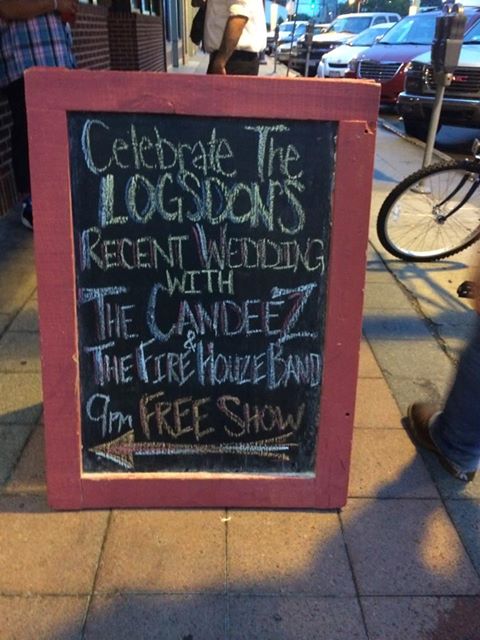 Celebrate The
LOGSDONS
RECENT WEDDING
WITH
THE CANDEEZ
&
THE FIRE HOUZE BAND
9pm FREE SHOW